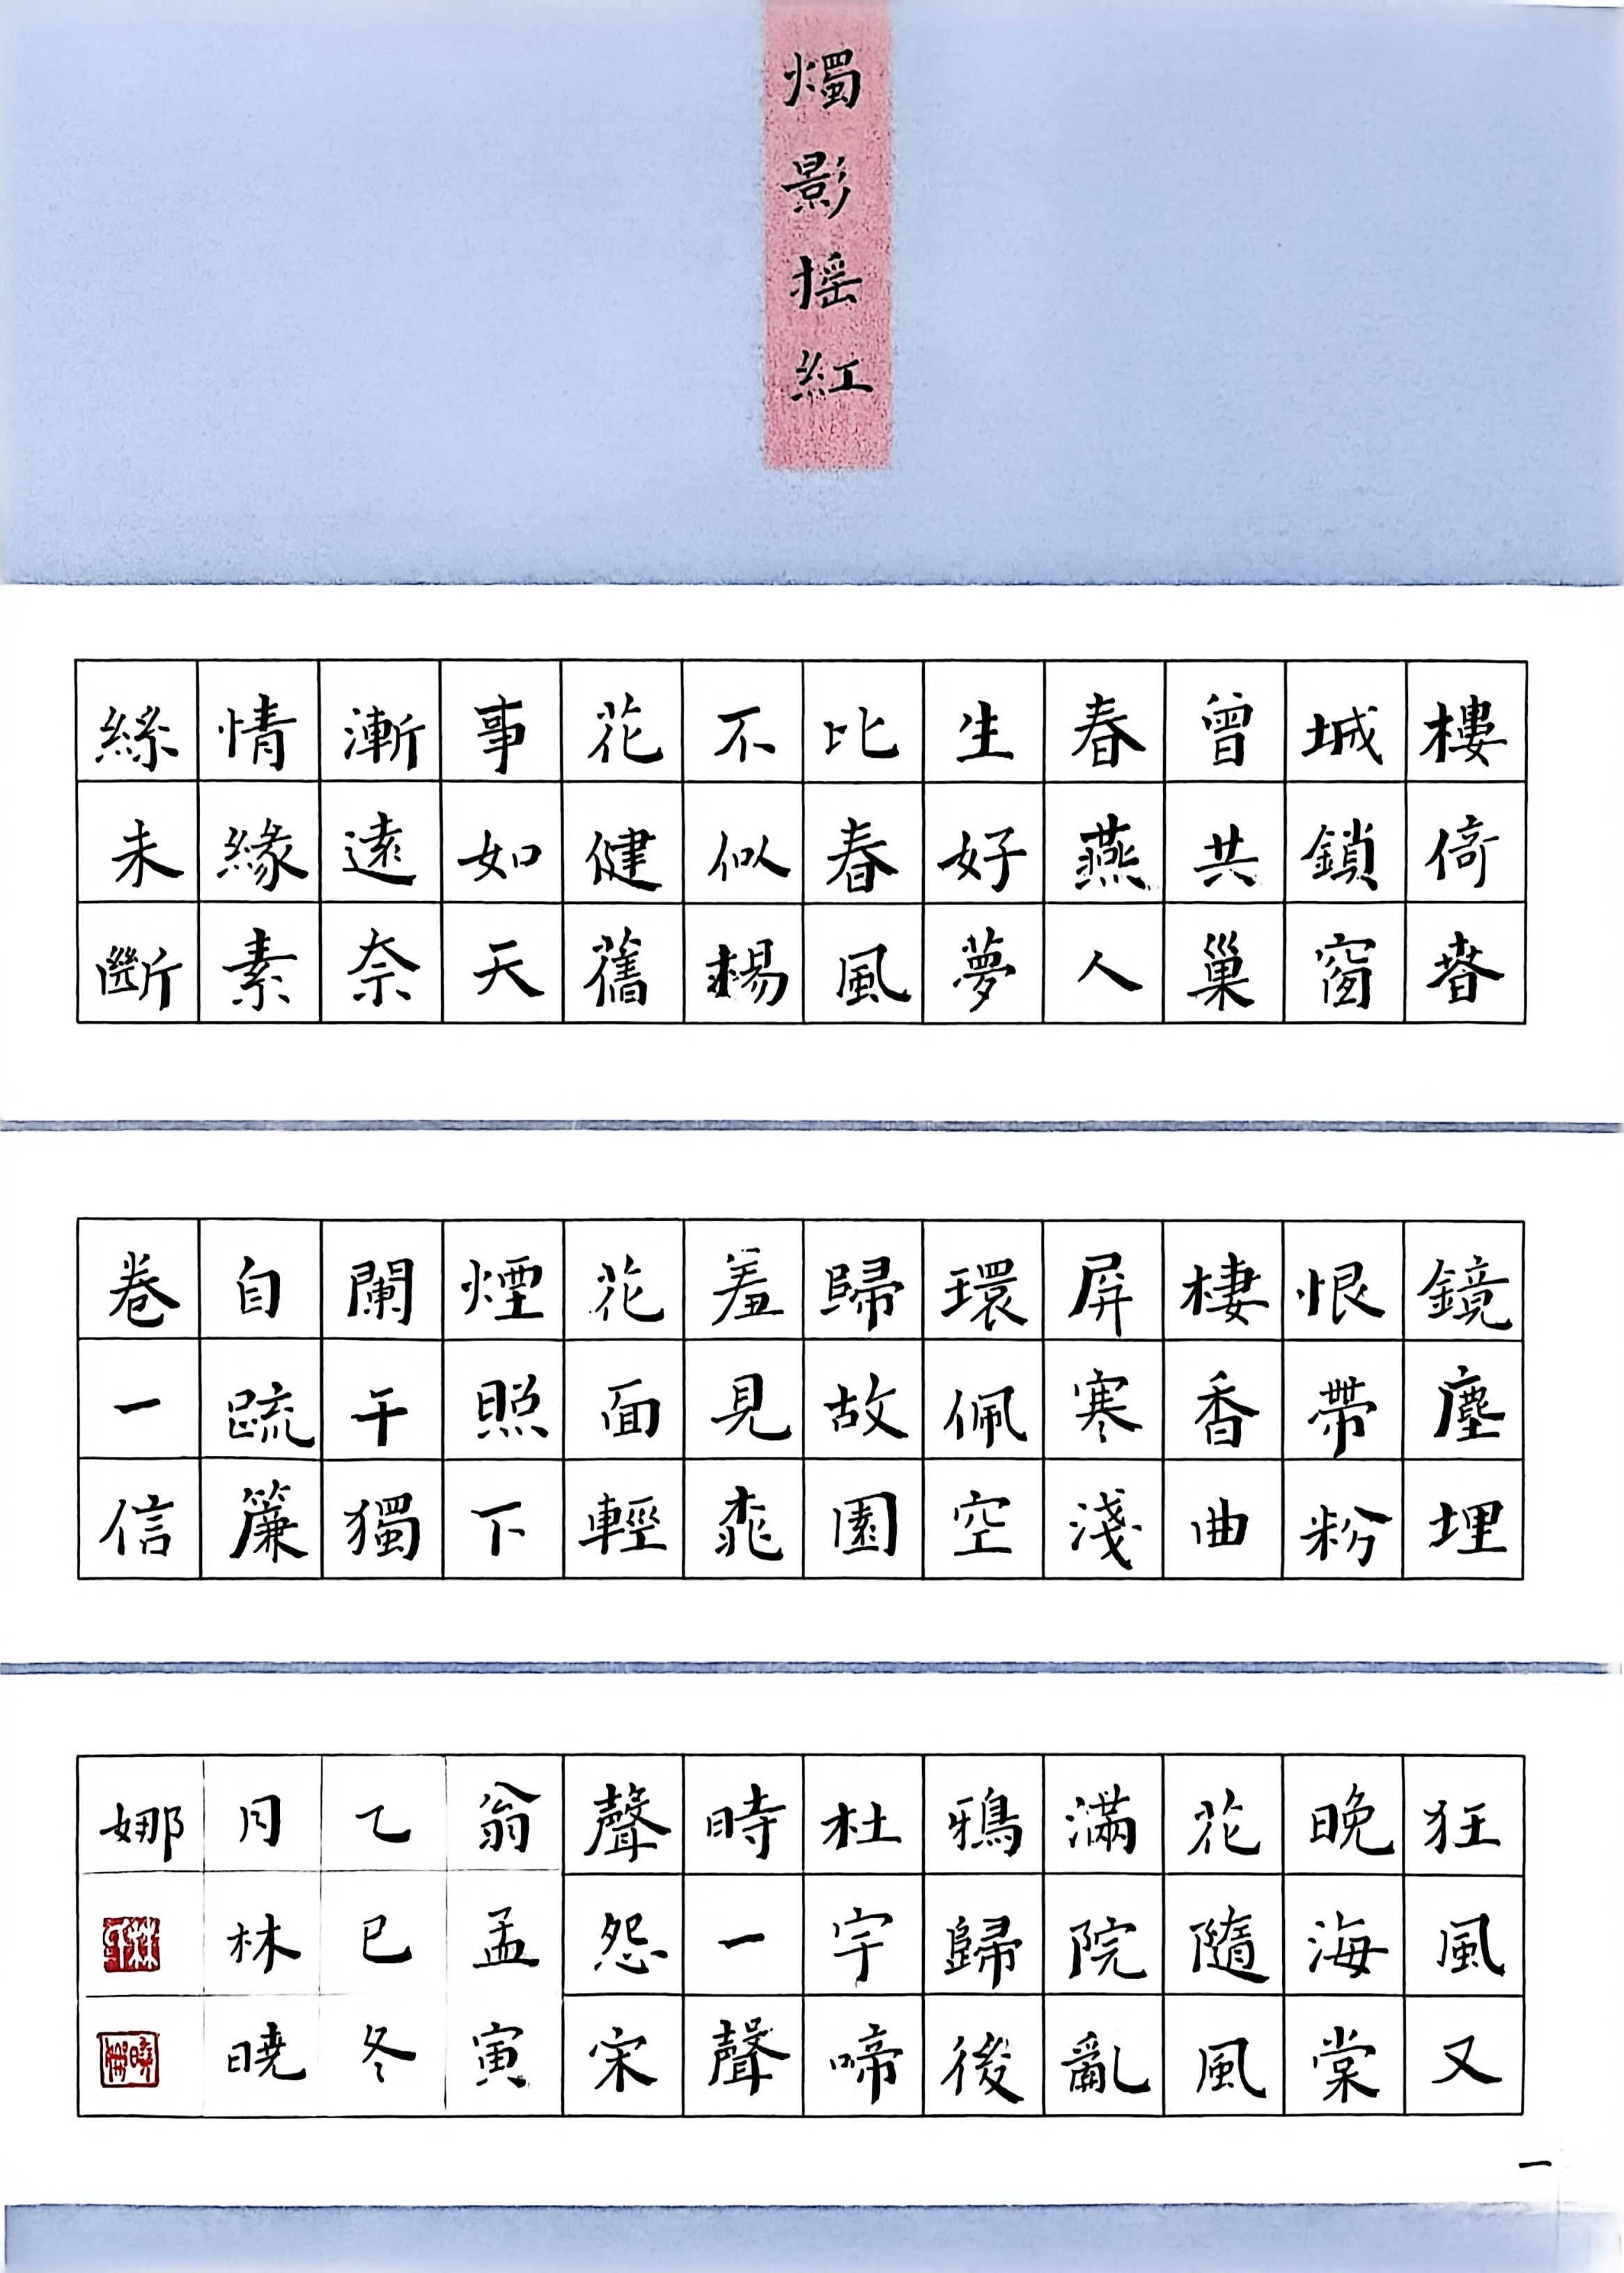 燭影摇紅
樓倚春
城鎖窗
曾共巢
春燕人
生好夢
比春風
不似楊
花健舊
事如天
漸遠奈
情緣素
絲未斷
鏡塵埋
恨帶粉
棲香曲
屏寒淺
環佩空
歸故園
羞見桃
花面輕
煙照下
闌干獨
自疏簾
卷一信
狂風又
晚海棠
花隨風
滿院亂
鴉歸後
杜宇啼
時一聲
聲怨宋
翁孟寅
乙巳冬
月林曉
娜
一